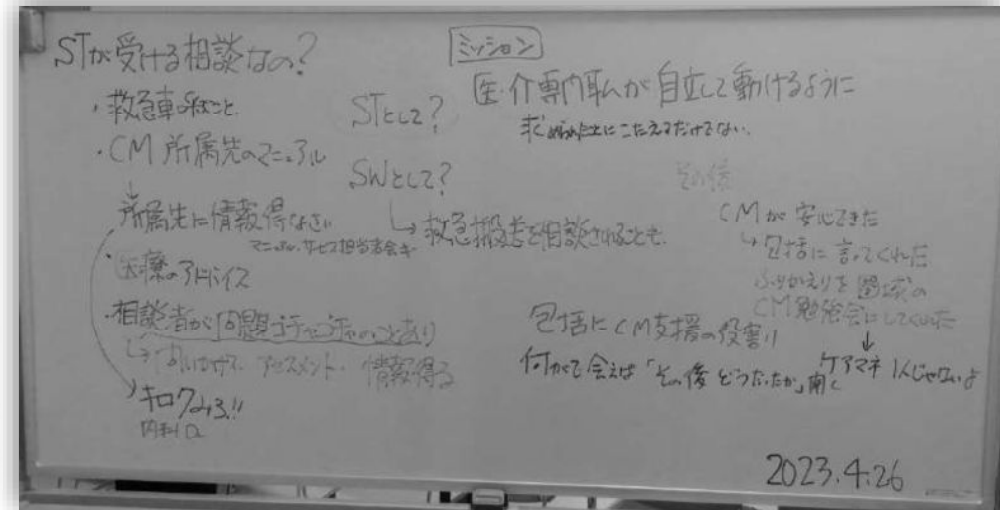 STが受ける相談なの?
・救急車呼ぶこと
・CM 所属先のマニュアル
↓
所属先に情報得なさい
マニュアル、サービス担当者会ギ
・医療のアドバイス
・相談者が問題ゴチャゴチャのことあり
↳ アセスメント・情報得る
キロクみる!!
内科Dr.
STとして?
SWとして?
↳ 救急搬送を相談されることも
ミッション
医・介専門职が自立して動けるように
求められたことにこたえるだけでない
その後
CMが安心できた
↳ 包括に言ってくれた
ふりかえりを圏域の
CM勉強会にしてくれた
↓
ケアマネ 1人じゃないよ
包括にCM支援の役割り
何かで会えば「その後どうだったか」聞く
2023.4.26